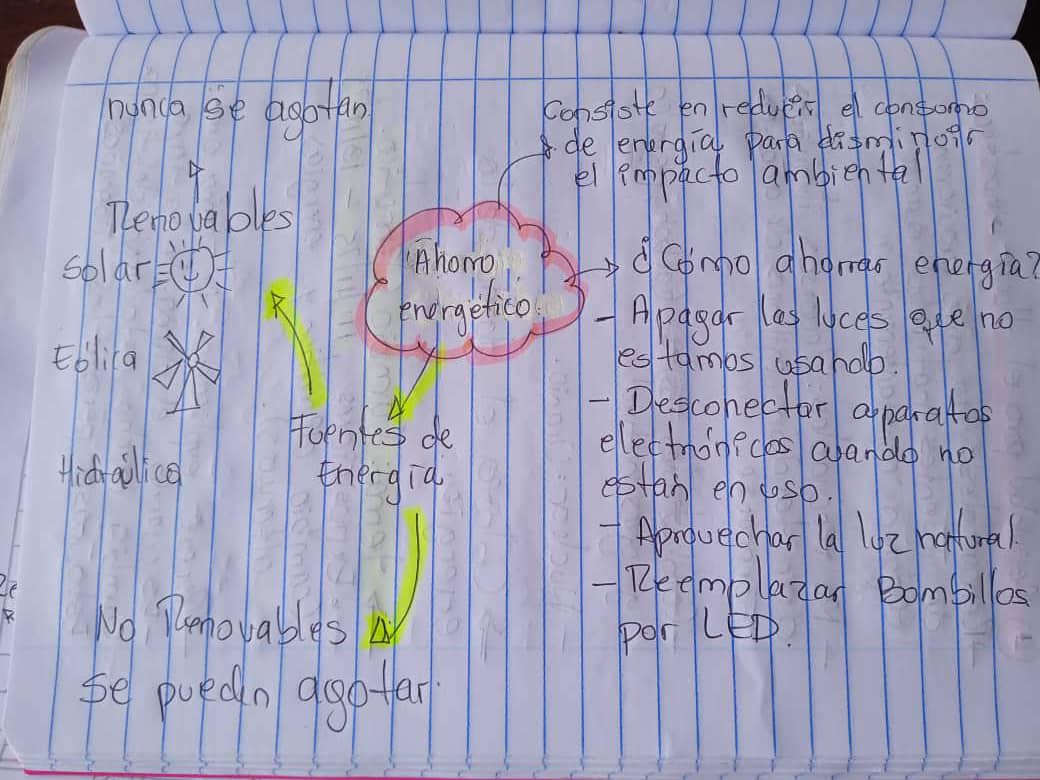 nunca se agotan.
Renovables
Solar
Eólica
Hidraúlica
Consiste en reducir el consumo
de energía para disminoir
el impacto ambiental
Ahorro
energético
Fuentes de
Energía
No Renovables
se puedn agotar.
¿Cómo ahorrar energía?
- Apagar las luces que no
estamos usando.
- Desconectar aparatos
electrónicos cuando no
están en uso.
- Aprovechar la luz natural.
- Reemplazar Bombillos
por LED.